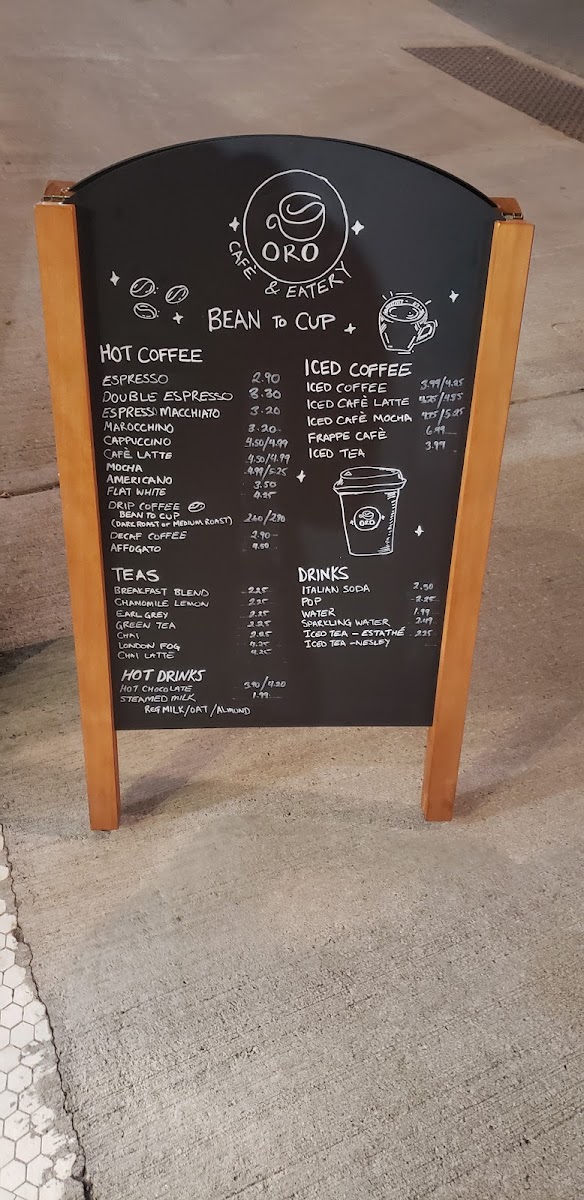 ORO
CAFÈ & EATERY
BEAN TO CUP
HOT COFFEE
ESPRESSO 2.90
DOUBLE ESPRESSO 3.30
ESPRESSO MACCHIATO 3.20
MAROCCHINO 3.20
CAPPUCCINO 4.50/4.99
CAFÈ LATTE 4.50/4.99
MOCHA 4.99/5.25
AMERICANO 3.50
FLAT WHITE 4.25
DRIP COFFEE
BEAN TO CUP
(DARK ROAST OR MEDIUM ROAST) 2.60/2.90
DECAF COFFEE 2.90
AFFOGATO
TEAS
BREAKFAST BLEND 2.25
CHAMOMILE LEMON 2.25
EARL GREY 2.25
GREEN TEA 2.25
CHAI
LONDON FOG 4.25
CHAI LATTE 4.25
HOT DRINKS
HOT CHOCOLATE 3.90/4.20
STEAMED MILK 1.99
REG MILK/OAT/ALMOND
ICED COFFEE
ICED COFFEE 3.99/4.25
ICED CAFÈ LATTE 4.25/4.85
ICED CAFÈ MOCHA
FRAPPE CAFÈ 6.99
ICED TEA 3.99
ORO
DRINKS
ITALIAN SODA 2.50
POP 2.25
WATER 1.99
SPARKLING WATER 2.49
ICED TEA - ESTATHÉ 2.25
ICED TEA - NESLEY